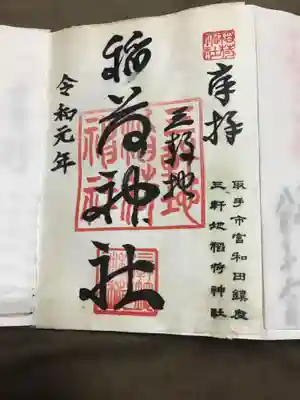 奉拝
取手市宮和田鎮座
三軒地稲荷神社
三軒地
稲荷神社
令和元年